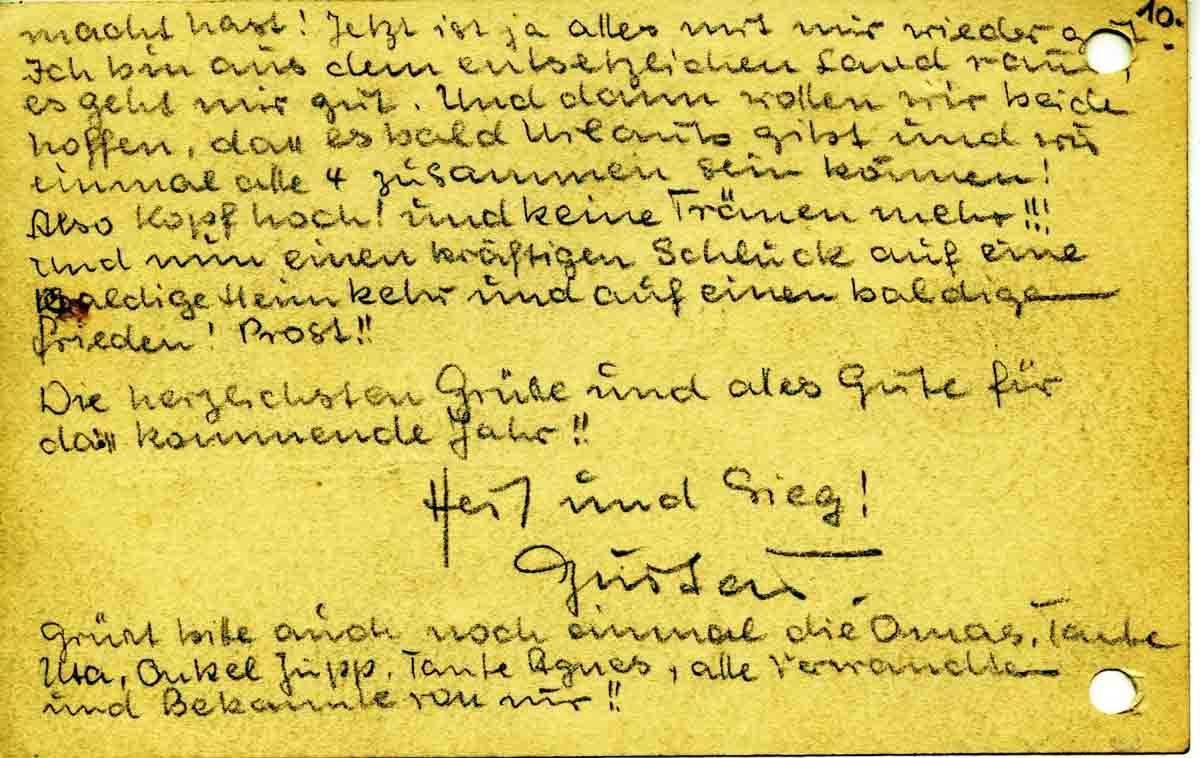 10.
macht hast! Jetzt ist ja alles mit mir wieder gut
Ich bin aus dem entsetzlichen Land raus,
es geht mir gut. Und dann wollen wir beide
hoffen, daß es bald Urlaub gibt und wir
einmal alle 4 zusammen sein können!
Also Kopf hoch! und keine Tränen mehr!!!
Und nun einen kräftigen Schluck auf eine
baldige Heimkehr und auf einen baldigen
Frieden! Prost!!
Die herzlichsten Grüße und alles Gute für
daß kommende Jahr!!
und Sieg!
Gustav.
Grüßt bitte auch noch einmal die Omas, Tante
Onkel Jupp, Tante Agnes, alle Verwandten
und Bekannte von mir!!